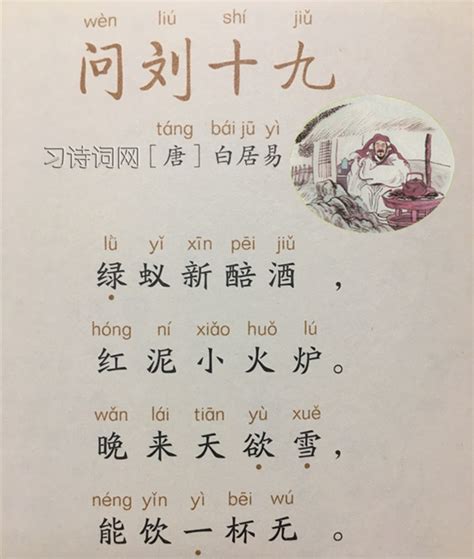 wèn liú shí jiǔ
问刘十九
táng bái jū yì
习诗词网 [唐] 白居易
lǜ yǐ xīn pēi jiǔ
绿蚁新醅酒，
hóng ní xiǎo huǒ lú
红泥小火炉。
wǎn lái tiān yù xuě
晚来天欲雪，
néng yǐn yì bēi wú
能饮一杯无。